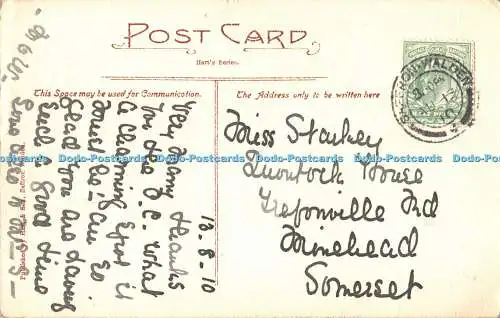 POST CARD
Hart's Series.
This Space may be used for Communication.
The Address only to be written here
13.8.10
Very Many thanks
for the P.C. What
a Charming Spot it
must be - am so
Glad you are having
such a good time
SAFFRON WALDEN
Miss Starkey
Quantock House
Trefonville Rd
Minehead
Somerset
Dodo-Postcards Dodo-Postcards Dodo-Postcards Dodo-Postcards Dodo-Postcards